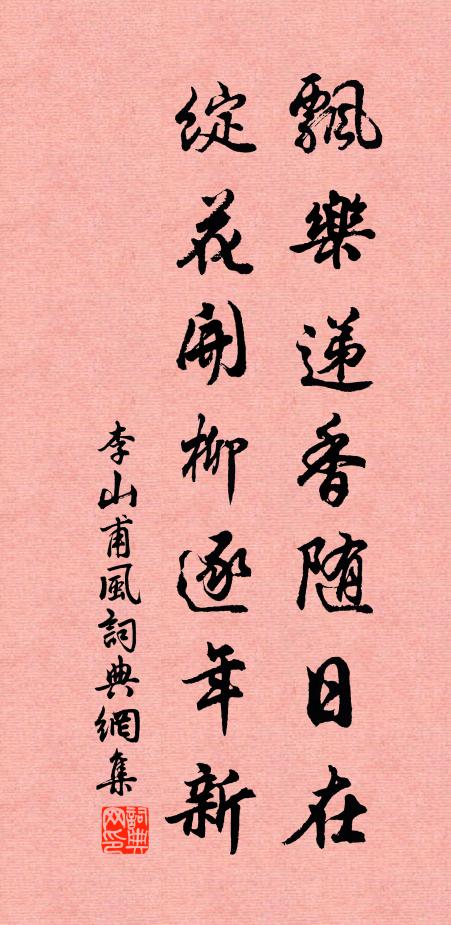 飄樂遞香随日在
綻花開柳逐年新
李山甫風詞典網集
詞典网印